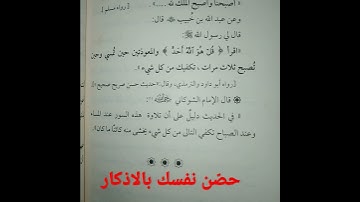 « أصبحنا وأصبح الملك لله ..... » . [ رواه مسلم ]
وعن عبد الله بن خُبيب ﷺ قال:
قال لي رسول الله ﷺ:
«اقرأ ﴿ قُلْ هُوَ اللَّهُ أَحَدٌ ﴾ والمعوذتين حين تُمسي وحين
تُصبح ثلاث مرات ، تكفيك من كل شيء» .
[رواه أبو داود والترمذي، وقال: «حديث حسن صحيح»]
قال الإمام الشوكاني
« في الحديث دليلٌ على أن تلاوة هذه السور عند المساء
وعند الصباح تكفي التالي من كل شيء يخشى منه كائناً ما كان» .
حضن نفسك بالاذكار